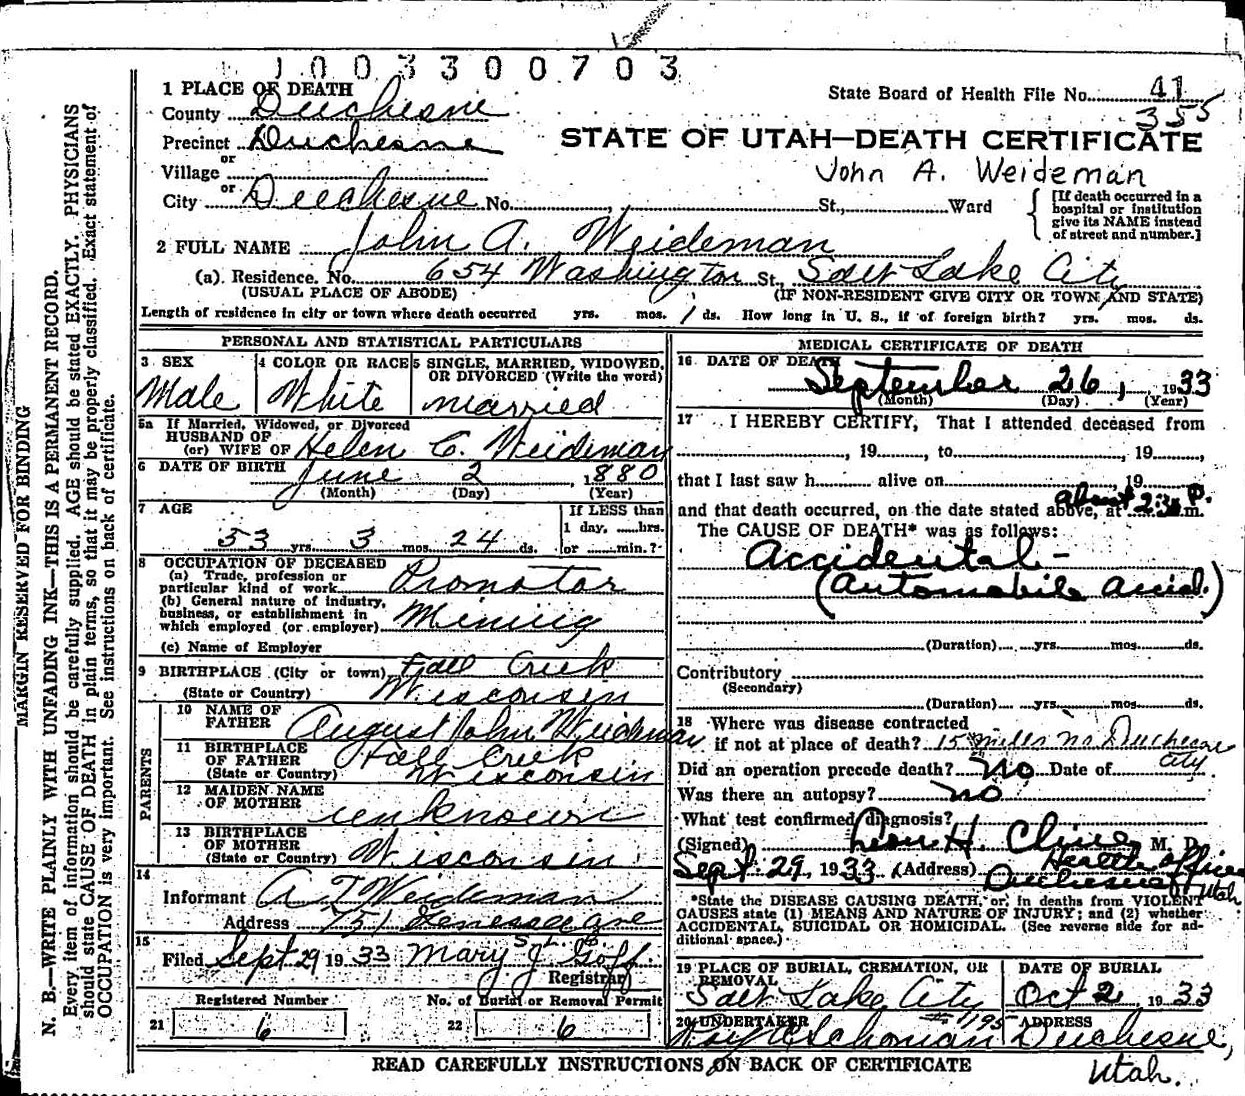 1003300703
1 PLACE OF DEATH
State Board of Health File No. 41
355
County Duchesne
Precinct Duchesne
STATE OF UTAH—DEATH CERTIFICATE
or
Village
John A. Weideman
or
City Duchesne No. , St., Ward
[If death occurred in a
hospital or institution
give its NAME instead
of street and number.]
2 FULL NAME John A. Weideman
(a). Residence. No. 654 Washington St., Salt Lake City
(USUAL PLACE OF ABODE) (IF NON-RESIDENT GIVE CITY OR TOWN AND STATE)
Length of residence in city or town where death occurred yrs. mos. 1 ds. How long in U. S., if of foreign birth? yrs. mos. ds.
PERSONAL AND STATISTICAL PARTICULARS
3 SEX
Male
4 COLOR OR RACE
White
5 SINGLE, MARRIED, WIDOWED,
OR DIVORCED (Write the word)
married
5a If Married, Widowed, or Divorced
HUSBAND OF
(or) WIFE OF Helen C. Weideman
6 DATE OF BIRTH June 2, 1880
(Month) (Day) (Year)
7 AGE
53 yrs. 3 mos. 24 ds.
If LESS than
1 day, hrs.
or min.?
8 OCCUPATION OF DECEASED
(a) Trade, profession or
particular kind of work Promotor
(b) General nature of industry,
business, or establishment in
which employed (or employer) Mining
(c) Name of Employer
9 BIRTHPLACE (City or town) Fall Creek
(State or Country) Wisconsin
PARENTS
10 NAME OF
FATHER August John Weideman
11 BIRTHPLACE
OF FATHER Fall Creek
(State or Country) Wisconsin
12 MAIDEN NAME
OF MOTHER unknown
13 BIRTHPLACE
OF MOTHER
(State or Country) Wisconsin
14
Informant A. T. Weideman
Address 751 ave
15
Filed Sept 29 1933 Mary J. Goff
Registrar
Registered Number
21 6
No. of Burial or Removal Permit
22 6
MEDICAL CERTIFICATE OF DEATH
16 DATE OF DEATH
September 26, 1933
(Month) (Day) (Year)
17 I HEREBY CERTIFY, That I attended deceased from
, 19 , to , 19 ,
that I last saw h alive on , 19
and that death occurred, on the date stated above, at about 2:30 P. m.
The CAUSE OF DEATH* was as follows:
Accidental -
(Automobile Accid.)
(Duration) yrs. mos. ds.
Contributory
(Secondary)
(Duration) yrs. mos. ds.
18 Where was disease contracted
if not at place of death? 15 miles No Duchesne
City
Did an operation precede death? No Date of
Was there an autopsy? no
What test confirmed diagnosis?
(Signed) Leon H. Cline M. D.
Health officer
Sept. 29, 1933 (Address) Duchesne Utah
*State the DISEASE CAUSING DEATH, or in deaths from VIOLENT
CAUSES state (1) MEANS AND NATURE OF INJURY; and (2) whether
ACCIDENTAL, SUICIDAL OR HOMICIDAL. (See reverse side for ad-
ditional space.)
19 PLACE OF BURIAL, CREMATION, OR
REMOVAL
Salt Lake City
DATE OF BURIAL
Oct 2, 1933
20 UNDERTAKER
#1195
ADDRESS
Duchesne,
Utah.
READ CAREFULLY INSTRUCTIONS ON BACK OF CERTIFICATE
MARGIN RESERVED FOR BINDING
N. B.—WRITE PLAINLY WITH UNFADING INK—THIS IS A PERMANENT RECORD.
Every item of information should be carefully supplied. AGE should be stated EXACTLY. PHYSICIANS
should state CAUSE OF DEATH in plain terms, so that it may be properly classified. Exact statement of
OCCUPATION is very important. See instructions on back of certificate.